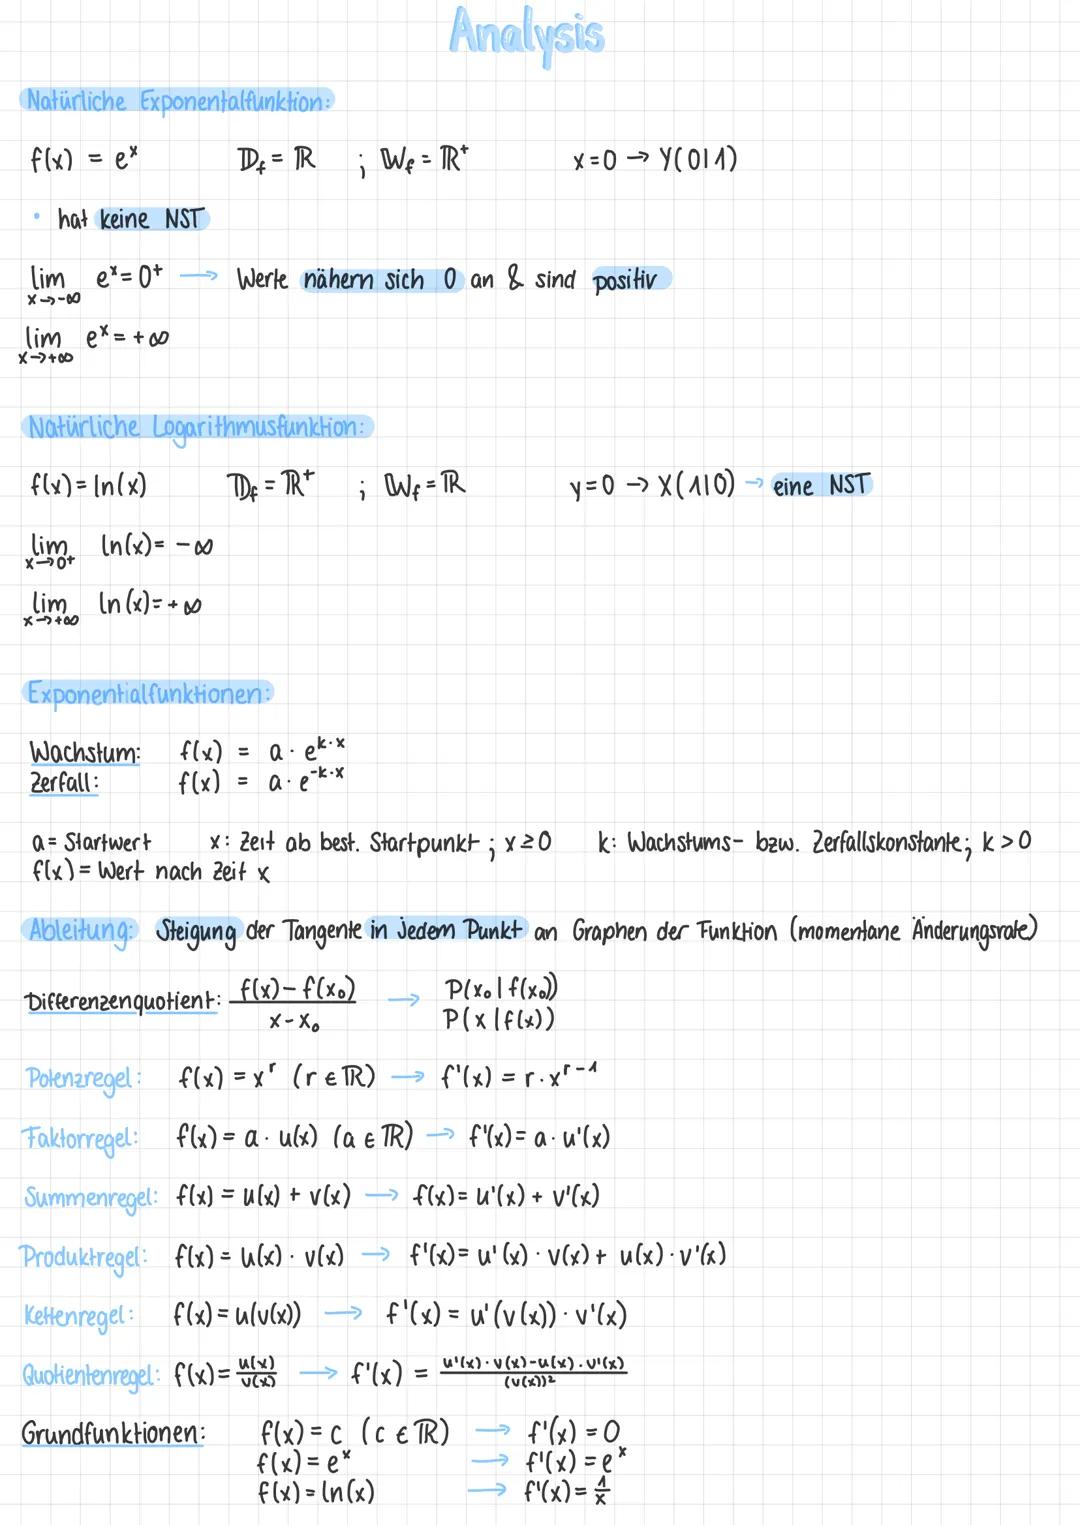 Analysis
Natürliche Exponentalfunktion:
f(x) = eˣ   𝔻f = ℝ ; 𝕎f = ℝ⁺   x=0 → Y(0|1)
• hat keine NST
lim x→-∞ eˣ = 0⁺ → Werte nähern sich 0 an & sind positiv
lim x→+∞ eˣ = +∞
Natürliche Logarithmusfunktion:
f(x) = ln(x)   𝔻f = ℝ⁺ ; 𝕎f = ℝ   y=0 → X(1|0) → eine NST
lim x→0⁺ ln(x) = -∞
lim x→+∞ ln(x) = +∞
Exponentialfunktionen:
Wachstum: f(x) = a · e^(k·x)
Zerfall: f(x) = a · e^(-k·x)
a = Startwert   x: Zeit ab best. Startpunkt ; x ≥ 0   k: Wachstums- bzw. Zerfallskonstante; k > 0
f(x) = Wert nach Zeit x
Ableitung: Steigung der Tangente in jedem Punkt an Graphen der Funktion (momentane Änderungsrate)
Differenzenquotient: (f(x) - f(x₀))/(x - x₀) → P(x₀ | f(x₀))
P(x | f(x))
Potenzregel: f(x) = xʳ (r ∈ ℝ) → f'(x) = r · xʳ⁻¹
Faktorregel: f(x) = a · u(x) (a ∈ ℝ) → f'(x) = a · u'(x)
Summenregel: f(x) = u(x) + v(x) → f(x) = u'(x) + v'(x)
Produktregel: f(x) = u(x) · v(x) → f'(x) = u'(x) · v(x) + u(x) · v'(x)
Kettenregel: f(x) = u(v(x)) → f'(x) = u'(v(x)) · v'(x)
Quotientenregel: f(x) = u(x)/v(x) → f'(x) = (u'(x) · v(x) - u(x) · v'(x))/(v(x))²
Grundfunktionen: f(x) = c (c ∈ ℝ) → f'(x) = 0
f(x) = eˣ → f'(x) = eˣ
f(x) = ln(x) → f'(x) = 1/x